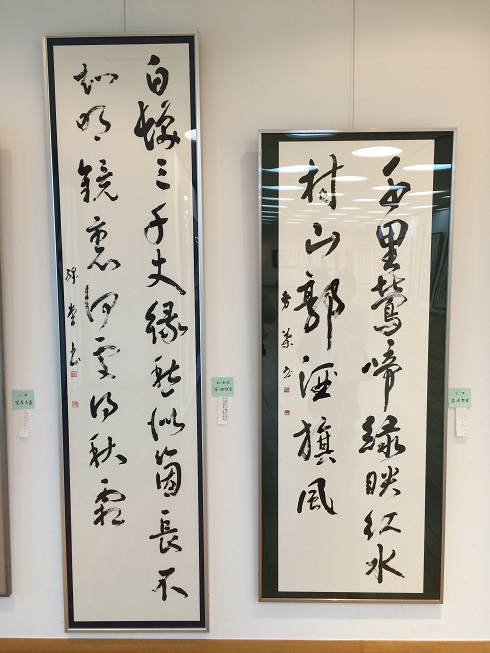 千里鶯啼緑映紅水
村山郭酒旗風
白髪三千丈縁愁似箇長不
知明鏡裏何処得秋霜